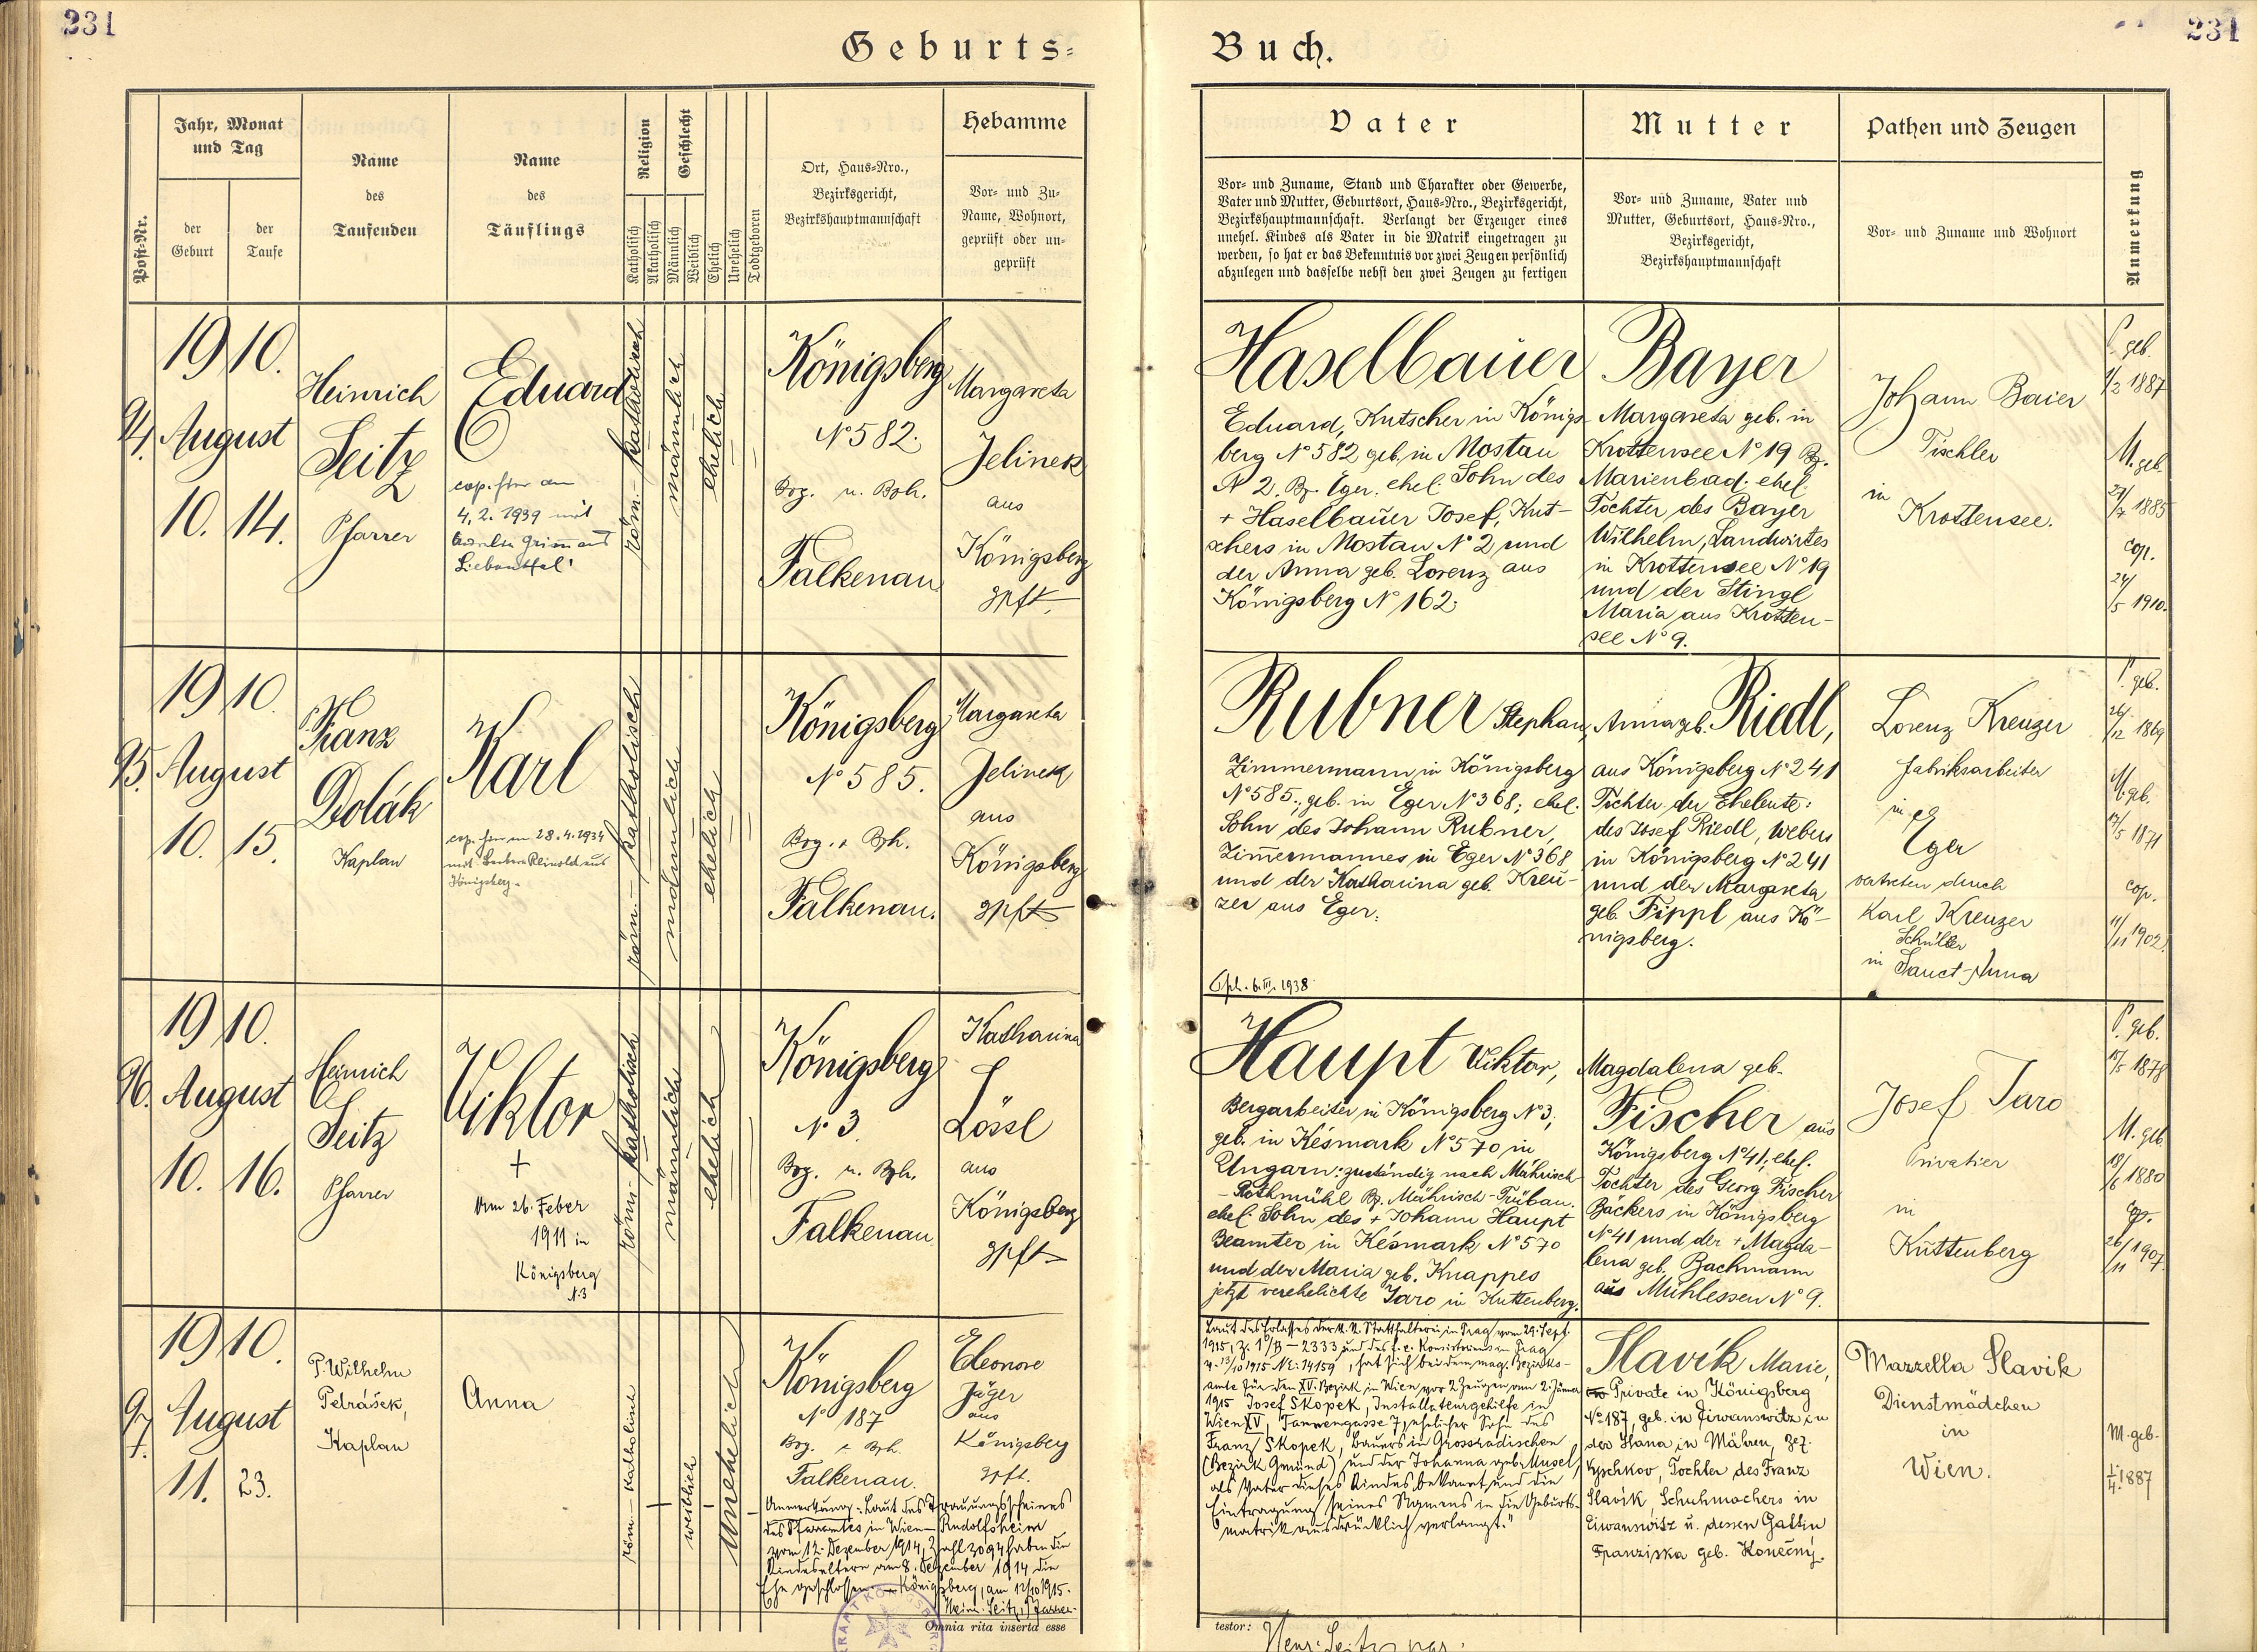 231
231
Geburts=
Buch.
Post-Nr.
Jahr, Monat
und Tag
der
Geburt
der
Taufe
Name
des
Taufenden
Name
des
Täuflings
Religion
Katholisch
Akatholisch
Geschlecht
Männlich
Weiblich
Ehelich
Unehelich
Todtgeboren
Ort, Haus=Nro.,
Bezirksgericht,
Bezirkshauptmannschaft
Hebamme
Vor= und Zu=
Name, Wohnort,
geprüft oder un=
geprüft
Vater
Vor= und Zuname, Stand und Charakter oder Gewerbe,
Vater und Mutter, Geburtsort, Haus=Nro., Bezirksgericht,
Bezirkshauptmannschaft. Verlangt der Erzeuger eines
unehel. Kindes als Vater in die Matrik eingetragen zu
werden, so hat er das Bekenntnis vor zwei Zeugen persönlich
abzulegen und dasselbe nebst den zwei Zeugen zu fertigen
Mutter
Vor= und Zuname, Vater und
Mutter, Geburtsort, Haus=Nro.,
Bezirksgericht,
Bezirkshauptmannschaft
Pathen und Zeugen
Vor= und Zuname und Wohnort
Anmerkung
94.
1910.
August
10. 14.
Heinrich
Seitz
Pfarrer
Eduard
4.2.1939 mit
röm.- katholisch
männlich
ehelich
Königsberg
N° 582.
Bzg. u. Bzh.
Falkenau
Margareta
Jelinek
aus
Königsberg
gpft.
Haselbauer
Eduard, Kutscher in Königs-
berg N° 582 geb. in Mostau
N° 2. Bz. Eger. ehel. Sohn des
+ Haselbauer Josef, Kut-
schers in Mostau N° 2 und
der Anna geb. Lorenz aus
Königsberg N° 162.
Bayer
Margareta geb. in
Krottensee N° 19 Bz.
Marienbad; ehel.
Tochter des Bayer
Wilhelm, Landwirtes
in Krottensee N° 19
und der Stingl
Maria aus Krotten-
see N° 9.
Johann Baier
Tischler
in
Krottensee.
geb.
1887
M. geb.
1885
cop.
24/5 1910.
95.
1910.
August
10. 15.
P. Franz
Dolák
Kaplan
Karl
28.4.1934
Königsberg.
röm.- katholisch
männlich
ehelich
Königsberg
N° 585.
Bzg. + Bzh.
Falkenau.
Margareta
Jelinek
aus
Königsberg
gpft.
Rubner Stephan,
Zimmermann in Königsberg
N° 585.; geb. in Eger N° 368; ehel.
Sohn des Johann Rubner,
Zimmermannes in Eger N° 368
und der Katharina geb. Kreu-
zer aus Eger.
6.III.1938
Anna geb. Riedl,
aus Königsberg N° 241
Tochter der Eheleute:
des Josef Riedl, Webers
in Königsberg N° 241
und der Margareta
geb. Fippl aus Kö-
nigsberg.
Lorenz Kreuzer
Fabriksarbeiter
in
Eger
vertreten durch
Karl Kreuzer
Schüller
in Sanct-Anna
geb.
26/12 1869
M. geb.
17/5 1871
cop.
11/11 1902.
96.
1910.
August
10. 16.
Heinrich
Seitz
Pfarrer
Viktor
+
am 26. Feber
1911 in
Königsberg
N.3
röm.- katholisch
männlich
ehelich
Königsberg
N° 3.
Bzg. u. Bzh.
Falkenau
Katharina
Lössl
aus
Königsberg
gpft.
Haupt Viktor,
Bergarbeiter in Königsberg N° 3,
geb. in Késmark N° 570 in
Ungarn; zuständig nach Mährisch
-Rothmühl Bz. Mährisch-Trübau.
ehel. Sohn des + Johann Haupt
Beamter in Késmark N° 570
und der Maria geb. Knappes
jetzt verehelichte Jaro in Kuttenberg.
Magdalena geb.
Fischer aus
Königsberg N° 41, ehel.
Tochter des Georg Fischer
Bäckers in Königsberg
N° 41 und der + Magda-
lena geb. Bachmann
aus Mühlessen N° 9.
Josef Jaro
Privatier
in
Kuttenberg
geb.
17/5 1878
M. geb.
19/6 1880
cop.
26/11 1907.
97.
1910.
August
11. 23.
P. Wilhelm
Petrášek,
Kaplan
Anna
röm-katholisch
weiblich
Unehelich
Königsberg
N° 187
Bzg. + Bzh.
Falkenau.
Anmerkung: Laut des Trauungsscheines
des Pfarramtes in Wien-Rudolfsheim
vom 12. Dezember 1914, Zahl 3094 haben die
Kindeseltern am 8. Dezember 1914 die
Ehe geschlossen. Königsberg, am 12/10 1915.
Heinr. Seitz, Pfarrer.
Eleonore
Jäger
aus
Königsberg
gpft.
Laut des Erlasses der k.k. Statthalterei in Prag vom 29. Sept.
1915, Z. 2333 und des f.e. Konsistoriums in Prag
v. 13/10 1915 NE: 14159, hat sich bei dem mag. Bezirks-
amte für den XV. Bezirk in Wien vor 2 Zeugen am 2. Jänner
1915 Josef Skopek, Installateurgehilfe in
Wien XV, Tannengasse 7, ehelicher Sohn des
Franz Skopek, Bauers in Grossradischen
(Bezirk Gmünd) und der Johanna geb. Musel,
als Vater dieses Kindes bekannt und die
Eintragung seines Namens in die Geburts-
matrik ausdrücklich verlangt."
Slavík Marie,
Private in Königsberg
N° 187, geb. in Eiwanowitz in
der Hana in Mähren, Bez.
Tochter des Franz
Slavík, Schuhmachers in
Eiwanowitz u. dessen Gattin
Franziska geb. Konečný.
Mazzella Slavik
Dienstmädchen
in
Wien.
M. geb.
1887
Omnia rita inserta esse
testor: Henr. Seitz